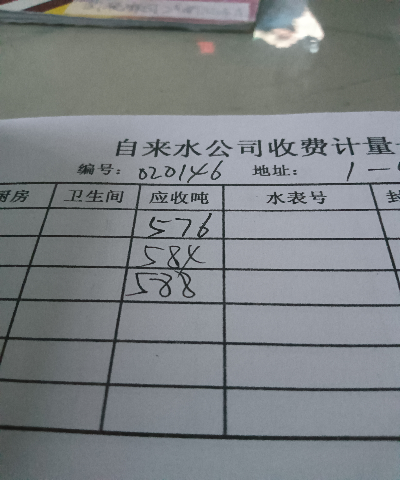 自来水公司收费计量
编号: 020146 地址: 1-
厨房 卫生间 应收吨 水表号 封
576
584
588